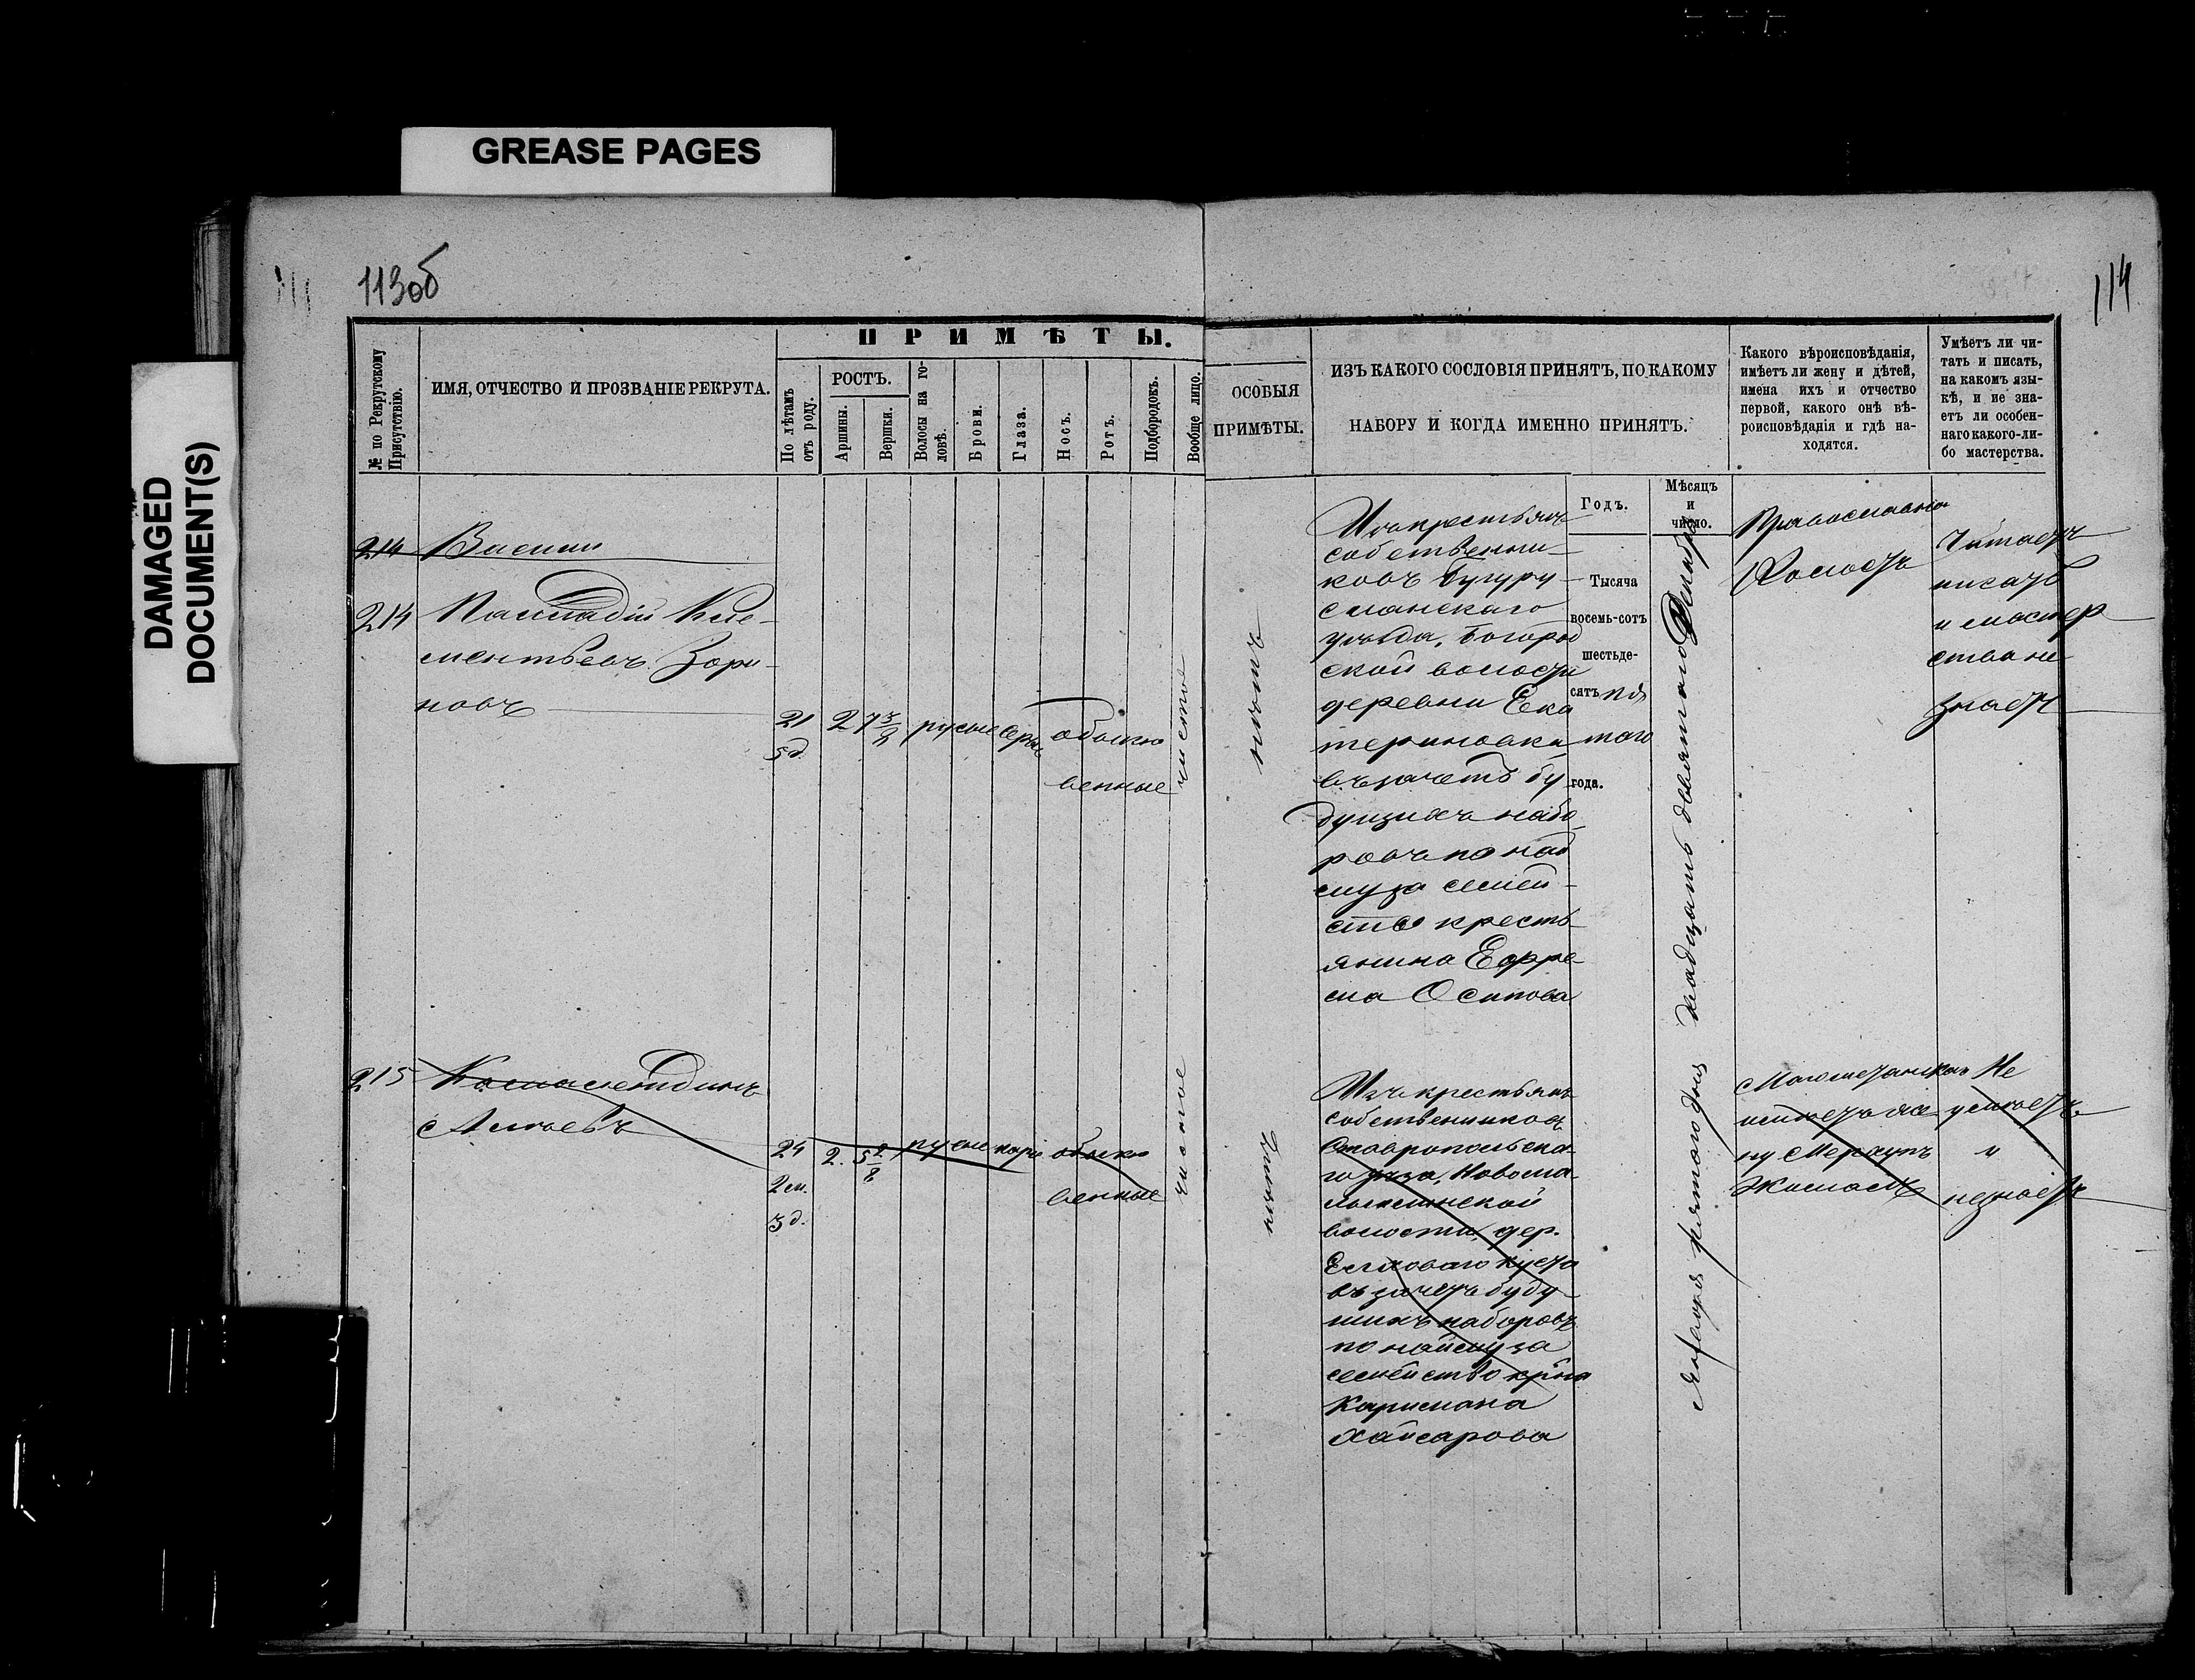 GREASE PAGES
DAMAGED
DOCUMENT(S)
113об
114
ПРИМѢТЫ.
№ по Рекрутскому
Присутствію.
ИМЯ, ОТЧЕСТВО И ПРОЗВАНІЕ РЕКРУТА.
По лѣтамъ
отъ роду.
РОСТЪ.
Аршины.
Вершки.
Волосы на го-
ловѣ.
Брови.
Глаза.
Носъ.
Ротъ.
Подбородокъ.
Вообще лицо.
ОСОБЫЯ
ПРИМѢТЫ.
ИЗЪ КАКОГО СОСЛОВІЯ ПРИНЯТЪ, ПО КАКОМУ
НАБОРУ И КОГДА ИМЕННО ПРИНЯТЪ.
Какого вѣроисповѣданія,
имѣетъ ли жену и дѣтей,
имена ихъ и отчество
первой, какого онѣ вѣ-
роисповѣданія и гдѣ на-
ходятся.
Умѣетъ ли чи-
тать и писать,
на какомъ язы-
кѣ, и не зна-
етъ ли особен-
наго какого-ли-
бо мастерства.
Годъ.
Мѣсяцъ
и
число.
214 Васили
214 Палладій Кле-
ментьевъ Зори-
новъ
21
5д.
2 7 3/8
русые
серые
обыкно
венные
чистое
нѣтъ
Изъ крестьянъ
собственни-
ковъ Бугуру-
сланскаго
уѣзда, Богород
ской волости
деревни Ека
териновки
въ зачетъ бу
дущихъ набо
ровъ по най
му за семей-
ство кресть-
янина Ефре-
ма Осипова
Тысяча
восемь-сотъ
шестьде-
сятъ пя
таго
года.
Декабря двадцать девятого
Православна
Холостъ
Читаетъ
писать
и мастер
ства не
знаетъ
215
24
2м.
3д.
2. 5 2/8
русые
каріе
обыкно
венные
чистое
нѣтъ
Изъ крестьянъ
собственниковъ
Ставропольска-
го уѣзда, Новома-
волости, дер.
въ зачетъ буду-
щихъ наборовъ
по найму за
семейство кр-на
Хайсарова
Января пятаго дня
Магометанской
имѣетъ же-
ну
Не
умѣетъ
и
незнаетъ